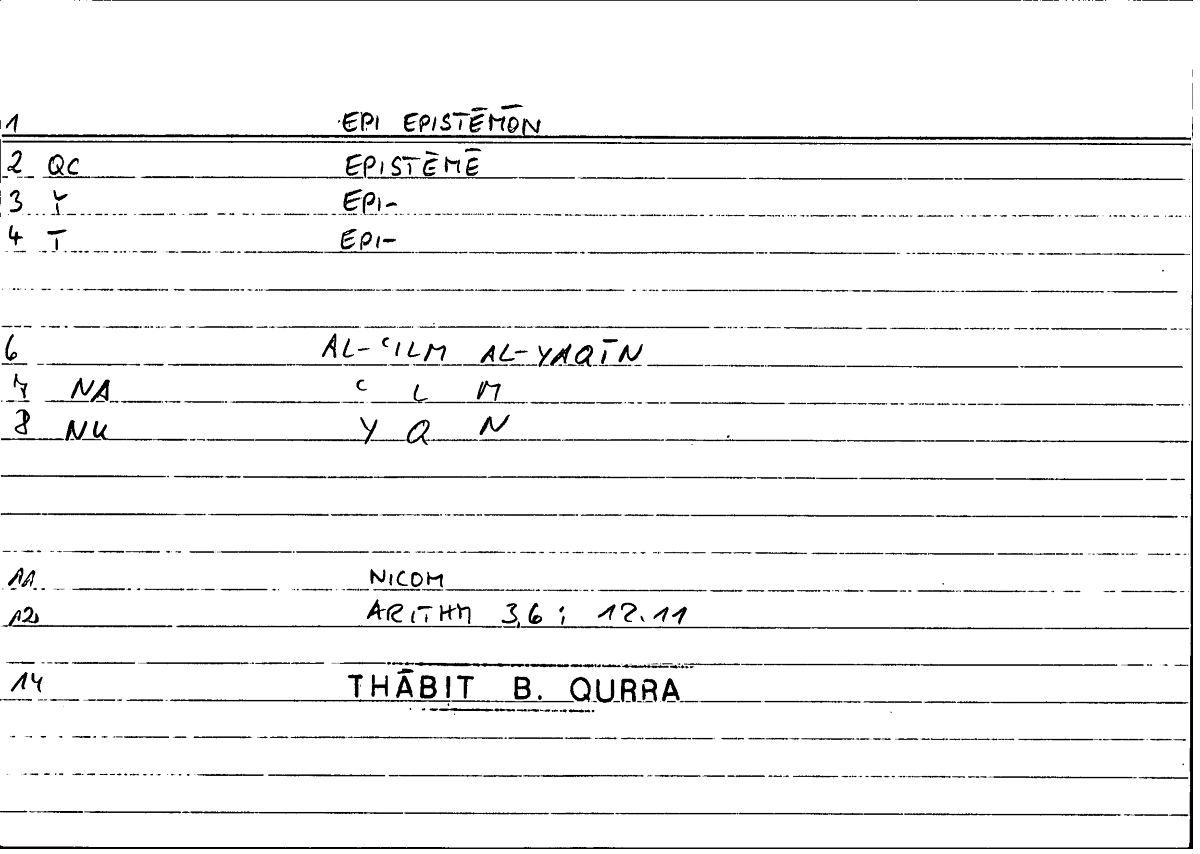 1 EPI EPISTĒMŌN
2 QC EPISTĒMĒ
3 Y EPI-
4 T EPI-
6 AL-ʿILM AL-YAQĪN
7 NA ʿ L M
8 NU Y Q N
11 NICOM
12 ARITHM 3,6; 12.11
14 THĀBIT B. QURRA